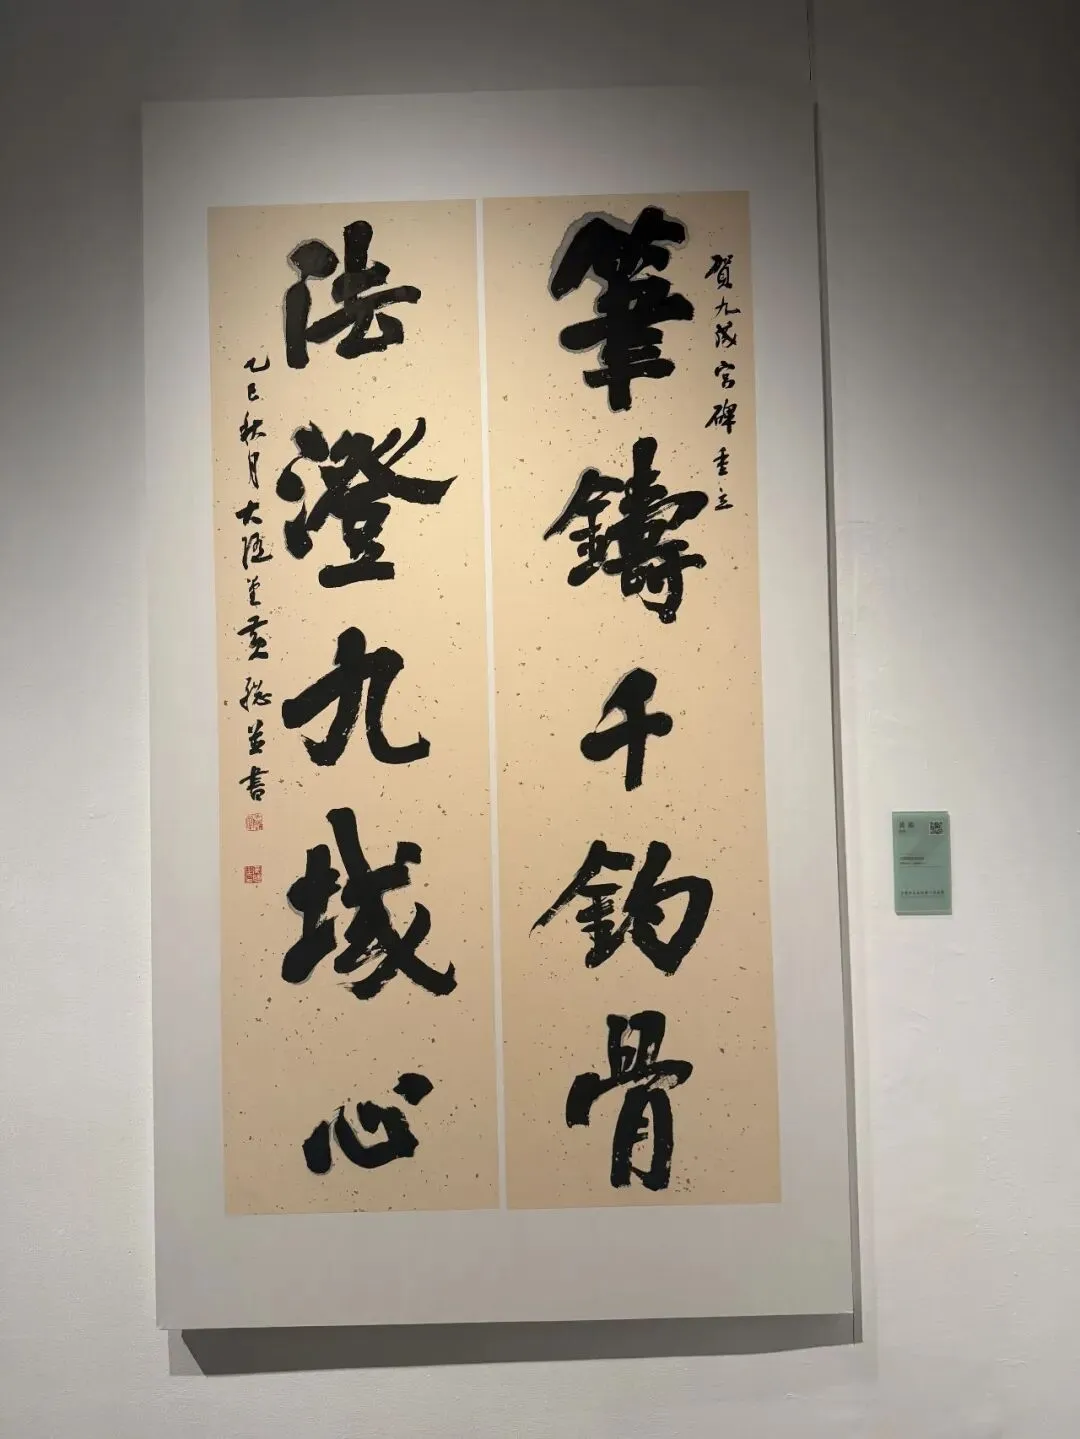 賀九成宮碑重立
筆鑄千鈞骨
法澄九域心
乙巳秋月大隱堂黃聰並書